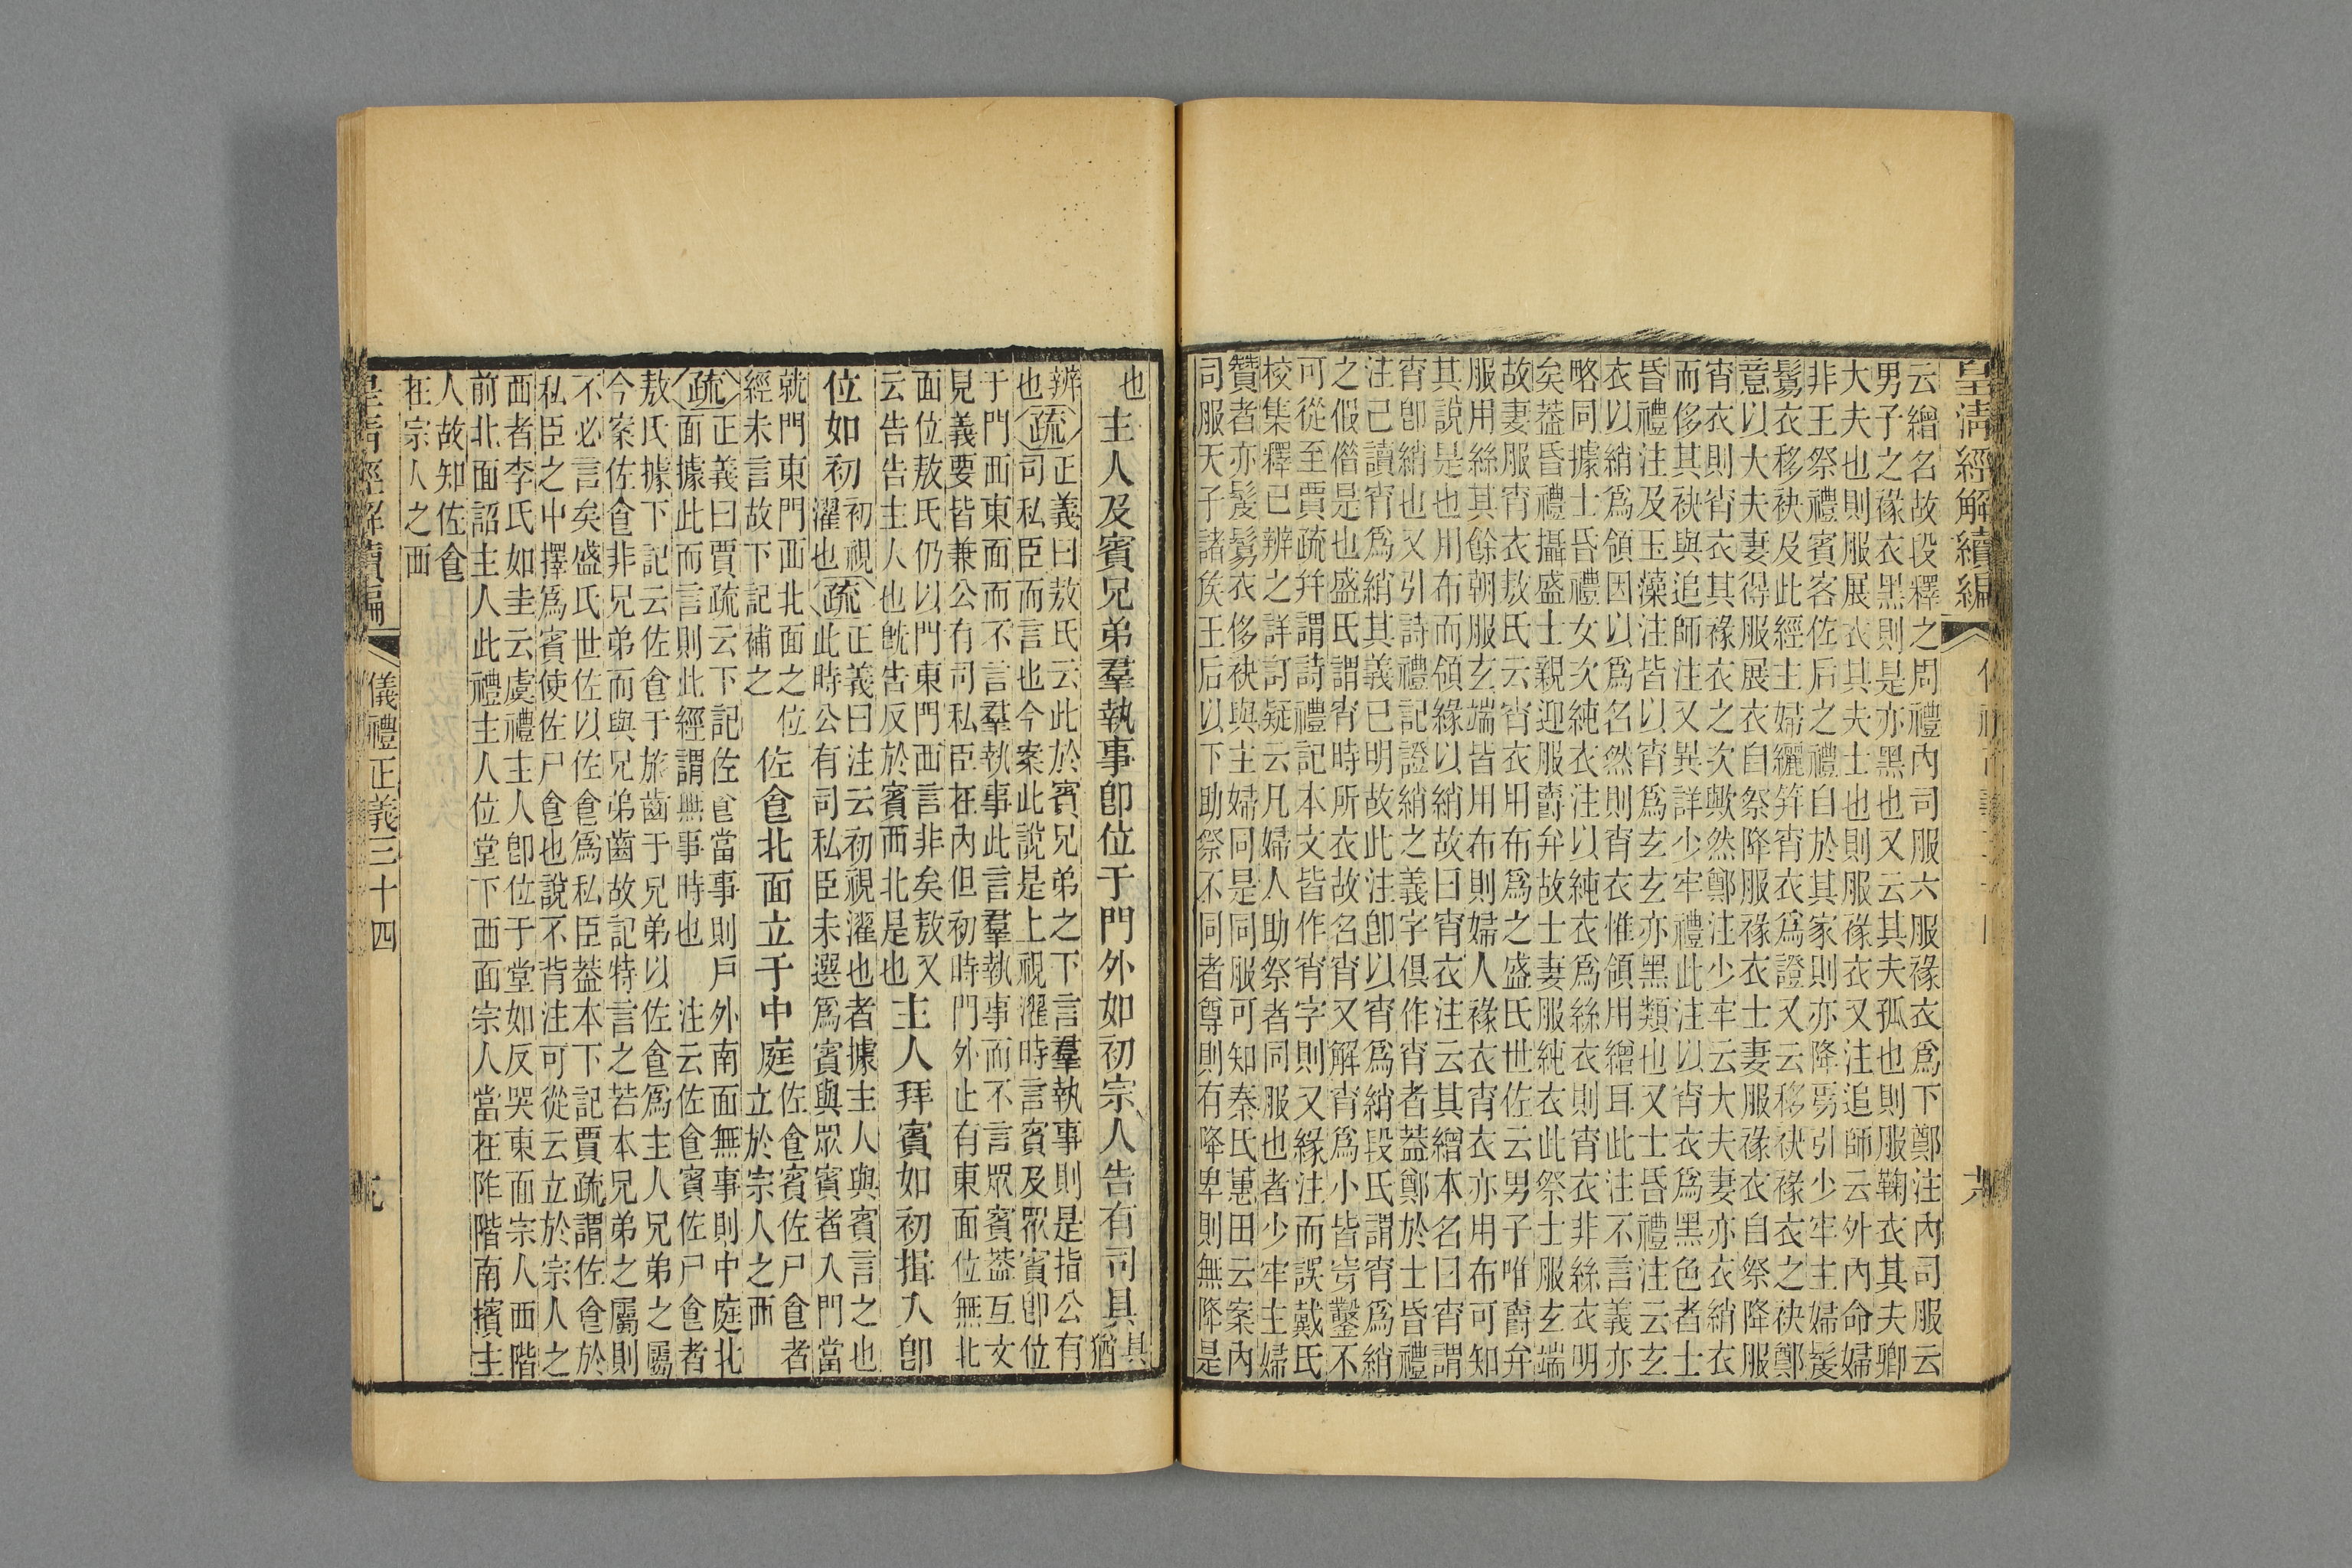 皇清經解續編
六
云繒名故段釋之周禮內司服六服褖衣爲下鄭注內司服云
男子之褖衣黑則是亦黑也又云其夫孤也則服鞠衣其夫卿
大夫也則服展衣其夫士也則服褖衣又注追師云外內命婦
非王祭禮賓客佐后之禮自於其家則亦降焉引少牢主婦髲
鬄衣移袂及此經主婦纚笄宵衣爲證又云移袂褖衣之袂鄭
意以大夫妻得服展衣自祭降服褖衣士妻服褖衣自祭降服
宵衣則宵衣其褖衣之次歟然鄭注少牢云大夫妻亦衣綃衣
而侈其袂與追師注又異詳少牢禮此注以宵衣爲黑色者士
昏禮注及玉藻注皆以宵爲玄玄亦黑類也又士昏禮注云玄
衣以綃爲領因以爲名然則宵衣惟領用繒耳此注不言義亦
略同據士昏禮女次純衣注以純衣爲絲衣則宵衣非絲衣明
矣葢昏禮攝盛士親迎服爵弁故士妻服純衣此祭士服玄端
故妻服宵衣敖氏云宵衣用布爲之盛氏世佐云男子唯爵弁
服用絲其餘朝服玄端皆用布則婦人褖衣宵衣亦用布可知
其說是也用布而領緣以綃故曰宵衣注云其繒本名曰宵謂
宵卽綃也又引詩禮記證綃之義字俱作宵者葢鄭於士昏禮
注已讀宵爲綃其義已明故此注卽以宵爲綃段氏謂宵爲綃
之假借是也盛氏謂宵時所衣故名宵又解宵爲小皆穿鑿不
可從至賈疏幷謂詩禮記本文皆作宵字則又緣注而誤戴氏
校集釋已辨之詳訂疑云凡婦人助祭者同服也者少牢主婦
贊者亦髲鬄衣侈袂與主婦同是同服可知秦氏蕙田云案內
司服天子諸矦王后以下助祭不同者尊則有降卑則無降是
也
主人及賓兄弟羣執事卽位于門外如初宗人告有司具
具
猶
辨
也
疏
正義曰敖氏云此於賓兄弟之下言羣執事則是指公有
司私臣而言也今案此說是上視濯時言賓及眾賓卽位
于門西東面而不言羣執事此言羣執事而不言眾賓葢互文
見義要皆兼公有司私臣在內但初時門外止有東面位無北
面位敖氏仍以門東門西言非矣敖又
云告告主人也旣告反於賓西北是也
主人拜賓如初揖入卽
位如初
初視
濯也
疏
正義曰注云初視濯也者據主人與賓言之也
此時公有司私臣未選爲賓與眾賓者入門當
就門東門西北面之位
經未言故下記補之
佐食北面立于中庭
佐食賓佐尸食者
立於宗人之西
疏
正義曰賈疏云下記佐食當事則戶外南面無事則中庭北
面據此而言則此經謂無事時也　注云佐食賓佐尸食者
敖氏據下記云佐食于旅齒于兄弟以佐食爲主人兄弟之屬
今案佐食非兄弟而與兄弟齒故記特言之若本兄弟之屬則
不必言矣盛氏世佐以佐食爲私臣葢本下記賈疏謂佐食於
私臣之中擇爲賓使佐尸食也說不背注可從云立於宗人之
西者李氏如圭云虞禮主人卽位于堂如反哭東面宗人西階
前北面詔主人此禮主人位堂下西面宗人當在阼階南擯主
人故知佐食
在宗人之西
皇清經解續編
儀禮正義三十四